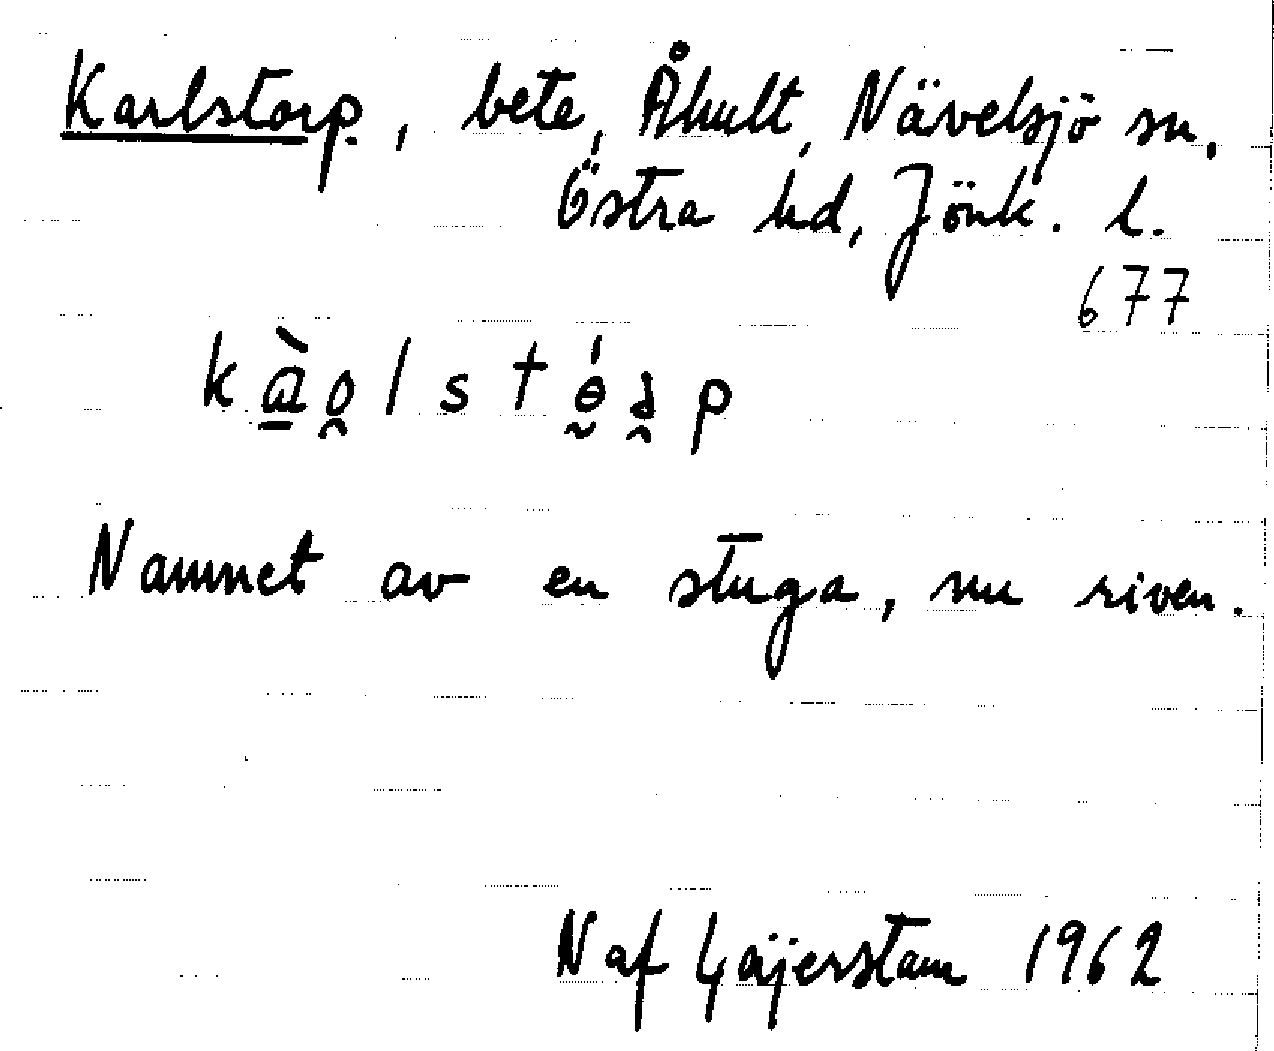 Karlstorp, bete, Åhult, Nävelsjö sn,
Östra hd, Jönk. l.
677
Namnet av en stuga, nu riven.
N af Geijerstam 1962